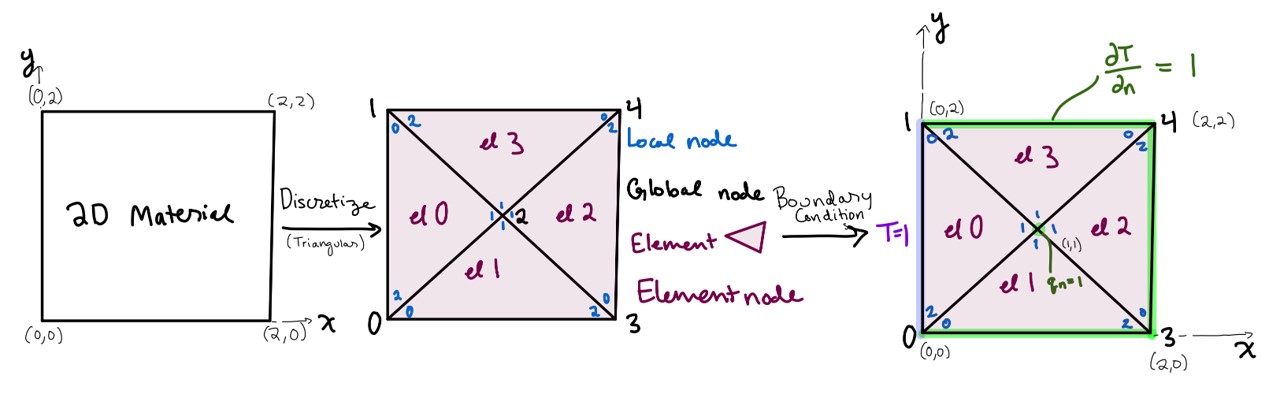 y
(0,2)
(2,2)
2D Material
(0,0)
(2,0)
x
Discretize
(Triangular)
1
4
0 2
0
2
el 3
el 0
1
1 1 2
1
el 2
el 1
2
0
0
2
0
3
Local node
Global node
Element
Element node
Boundary
Condition
y
∂T/∂n = 1
1
(0,2)
4
(2,2)
0 2
0
2
el 3
T=1
el 0
1
1 1
1
(1,1)
el 2
el 1
qn=1
2
0
0
2
0
(0,0)
3
(2,0)
x